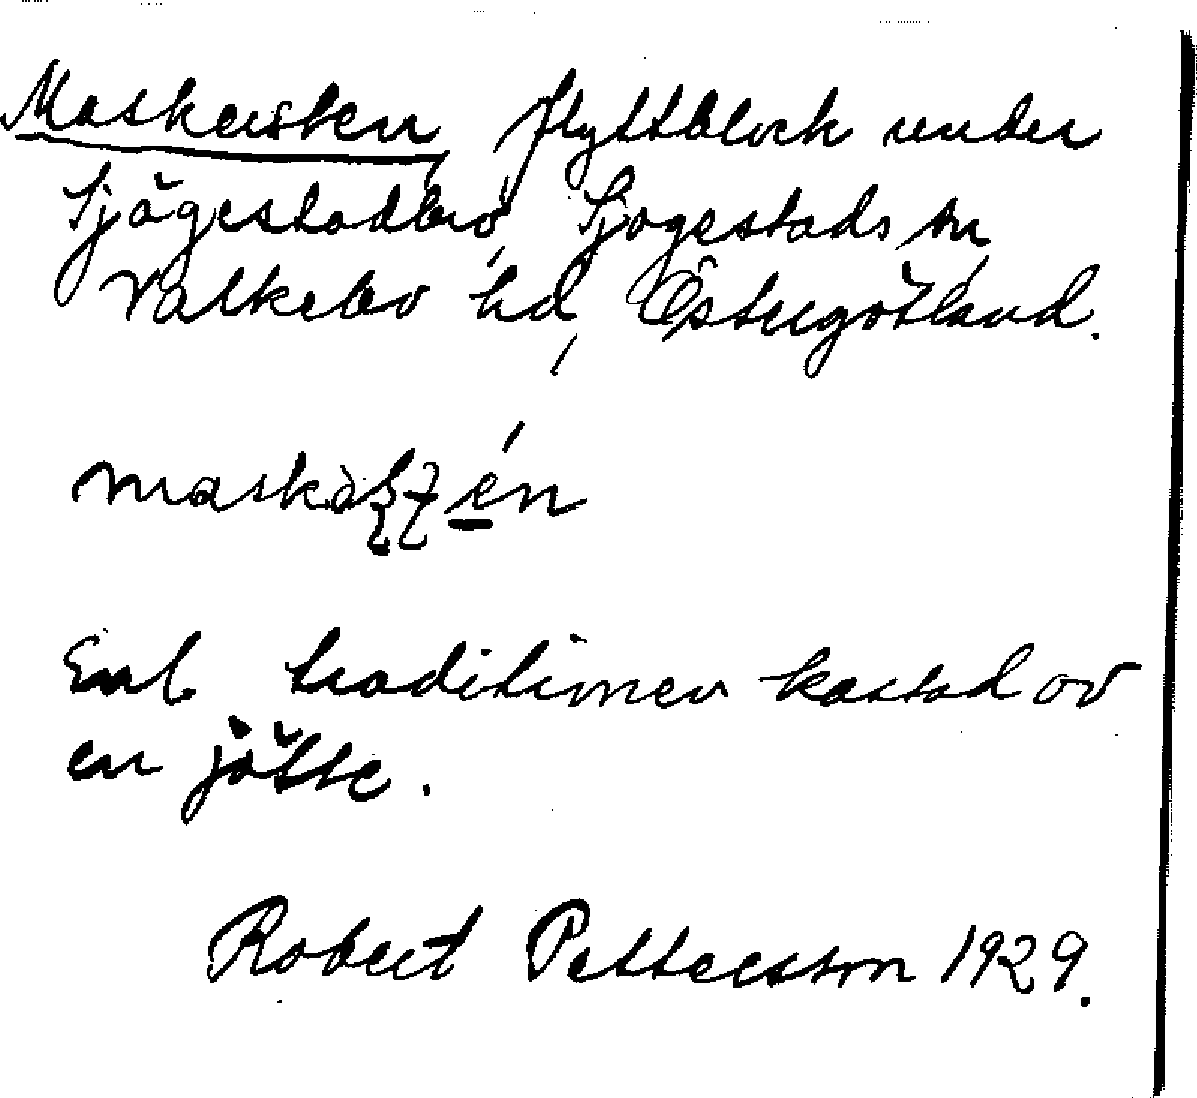 Maskersten, flyttblock under
Sjögestadbro, Sjögestads sn
Valkebo hd, Östergötland.
Enl. traditionen kastad av
en jätte.
Robert Pettersson 1929.